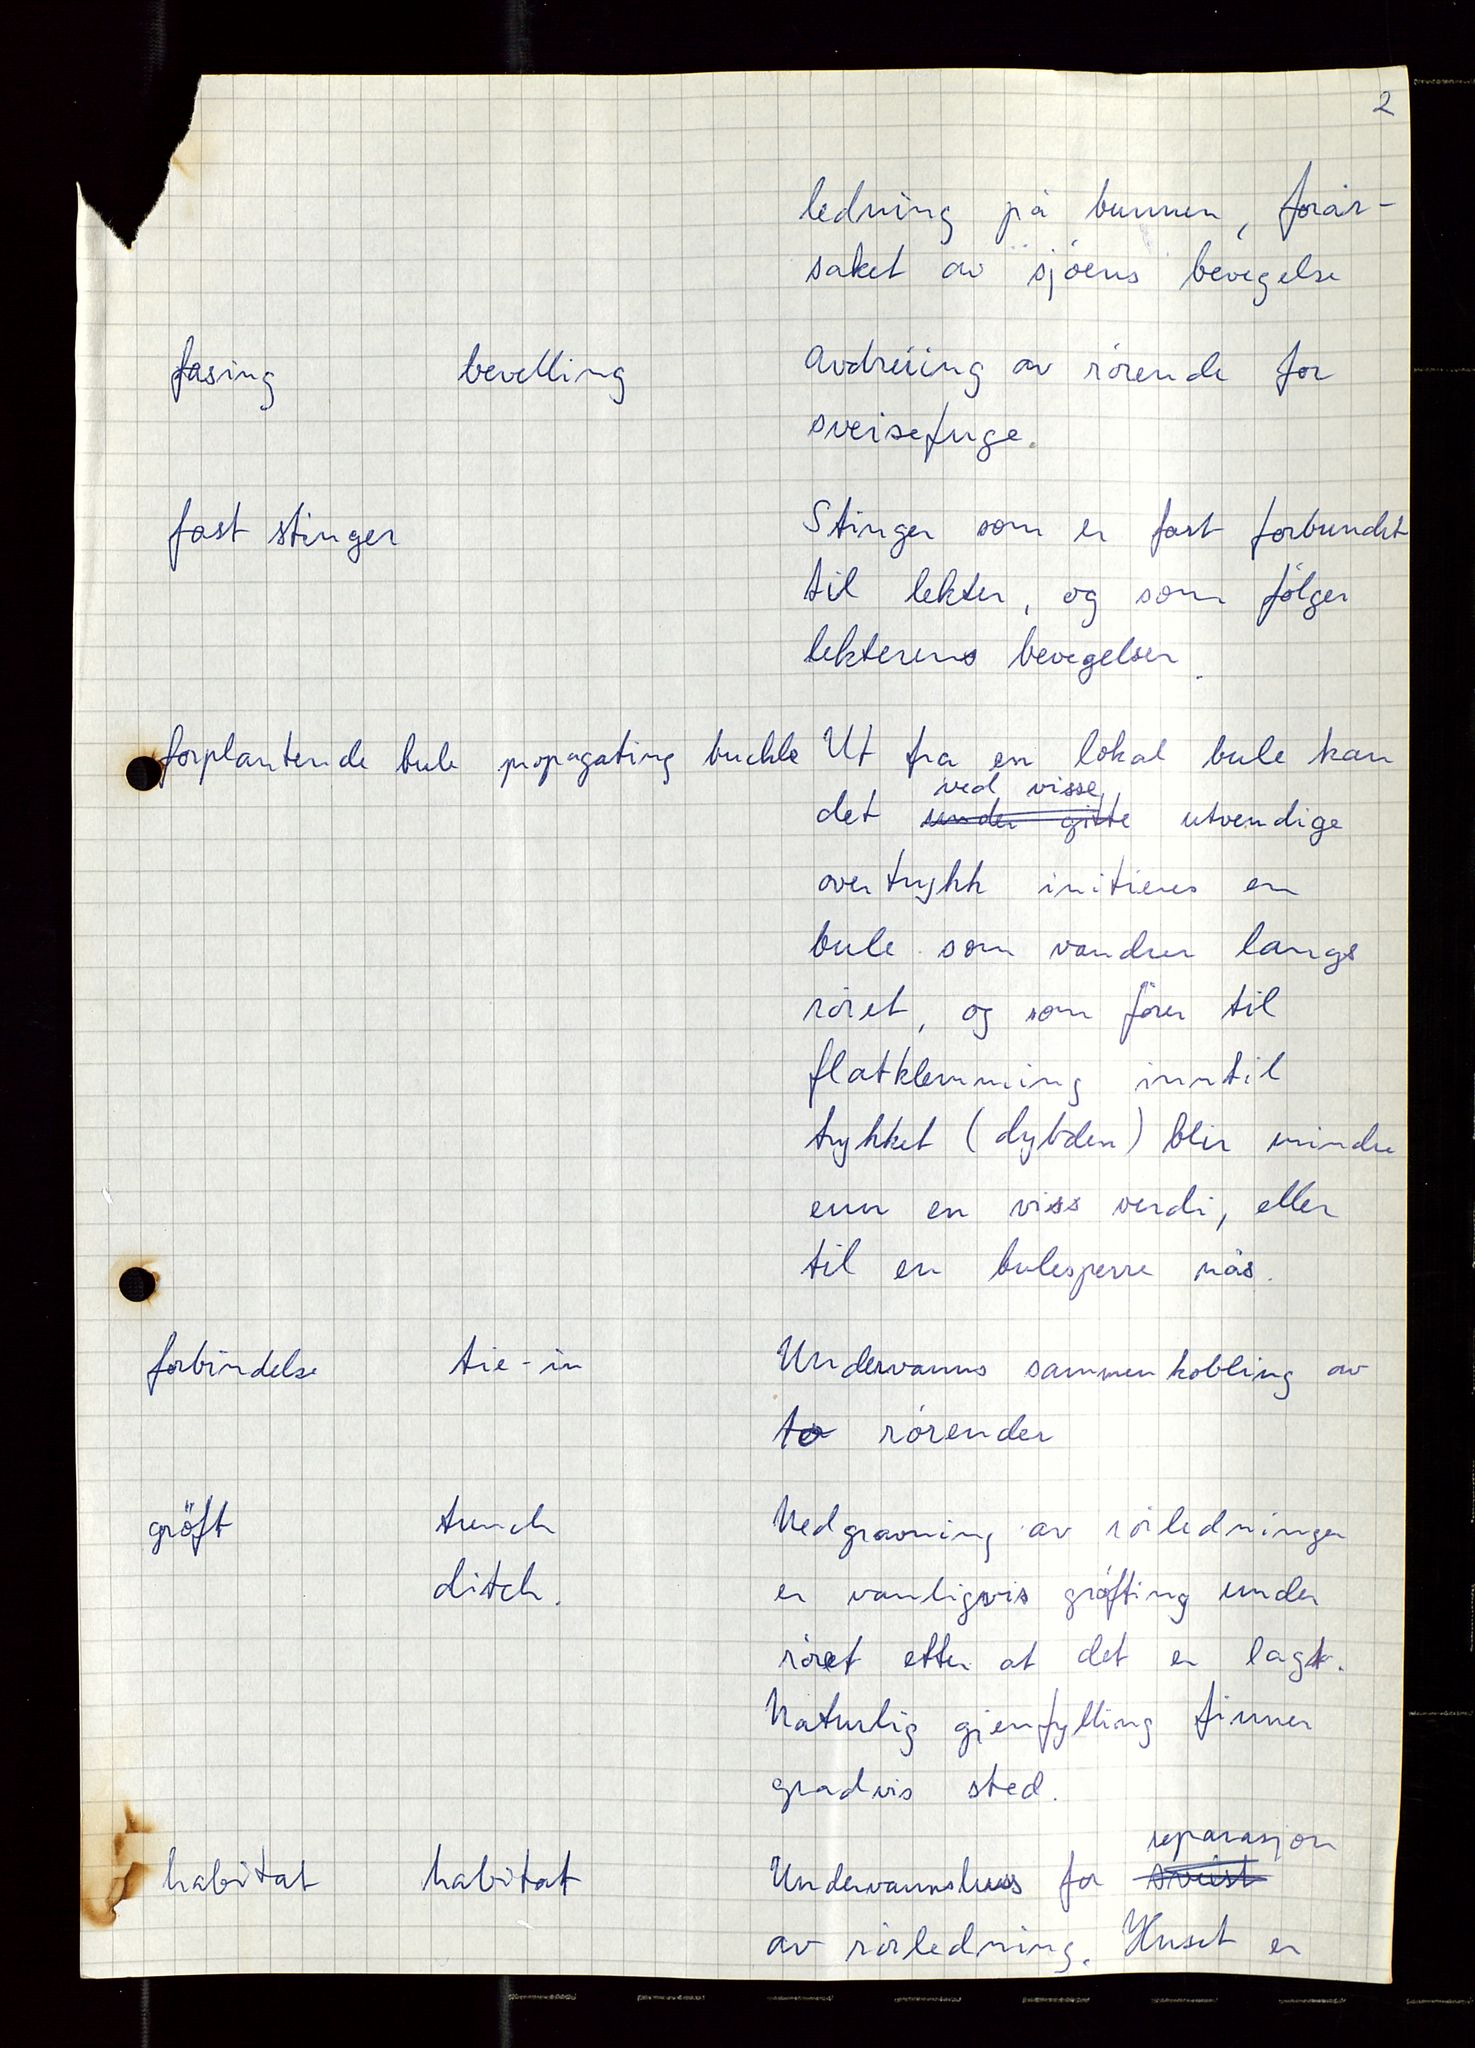 2
ledning på bunnen, forår-
saket av sjöens bevegelse
fasing bevelling avdreiing av rörende for
sveisefuge.
fast stinger Stinger som er fast forbundet
til lekter, og som fölger
lekterens bevegelser.
forplantende bule propagating buckle Ut fra en lokal bule kan
ved visse
det under gitte utvendige
overtrykk initieres en
bule som vandrer langs
röret, og som förer til
flatklemming inntil
trykket (dybden) blir mindre
enn en viss verdi, eller
til en bulesperre nås.
forbindelse tie-in Undervanns sammenkobling av
to rörender
gröft trench Nedgravning av rörledninger
ditch. er vanligvis gröfting under
röret etter at det er lagt.
Naturlig gjenfylling finner
gradvis sted.
reparasjon
habitat habitat Undervannshus for sveist
av rörledning. Huset er